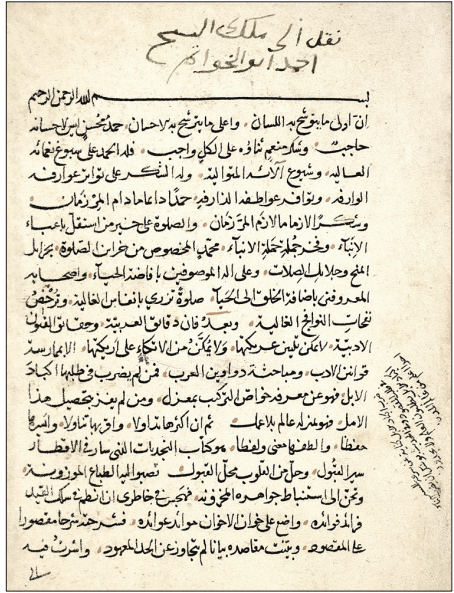 نقل الى ملك الشيخ
احمد ابو الخواتم
بسم الله الرحمن الرحيم
ان اولى ما يتوشح به اللسان واعلى ما يترشح به الاحسان حمد محسن ليس لاحسانه
حاجب وشكر منعم ثناؤه على الكل واجب فله الحمد على سبوغ نعمائه
العاليه وشيوع آلائه المتواليه وله الشكر على تواتر عوارفه
الوارفه وتوافد عواطفه الذارفه حمدا دائما ما دام مر الزمان
وشكرا لازما ما لازم المر زمان والصلوة على خير من استقل باعباء
الانباء وفخر جملة حملة الانباء محمد المخصوص من خزاين الصلوة بجزايل
المنح وجلايل الصلات وعلى اله الموصوفين بافاضة الحباء واصحابه
المعروفين باضافة الخلق الى الحيا صلوة تزري بانفاس الغاليه وترخص
نفحات النوافج الغاليه وبعد فان دقائق العربية وحقائق الفنون
الادبية لا يمكن تليين عريكتها ولا يتمكن من الاتكاء على اريكتها الا بممارسة
قوانين الادب ومباحثة دواوين العرب فمن لم يضرب في طلبها اكباد
الابل فهو عن معرفة خواص التركيب بمعزل ومن لم يفز بتحصيل هذا
الامل فهو عند العالم بلا عمل ثم ان اكثرها تداولا واقربها تناولا
حفظا والطفها معنى ولفظا هو كتاب النجديات التي سار في الاقطار
سير القبول وحل من القلوب محل القبول تصبو اليه الطباع الموزونة
وتحن الى استنباط جواهره المخزونه فهجس في خاطري ان انظم في سلك التقييد
فرائد فوائده واضع على خوان الاخوان موائد عوائده فشرحته شرحا مقصورا
على المقصود وبينت مقاصده بيانا لم يتجاوز عن الحد المعهود واشرت فيه
الى